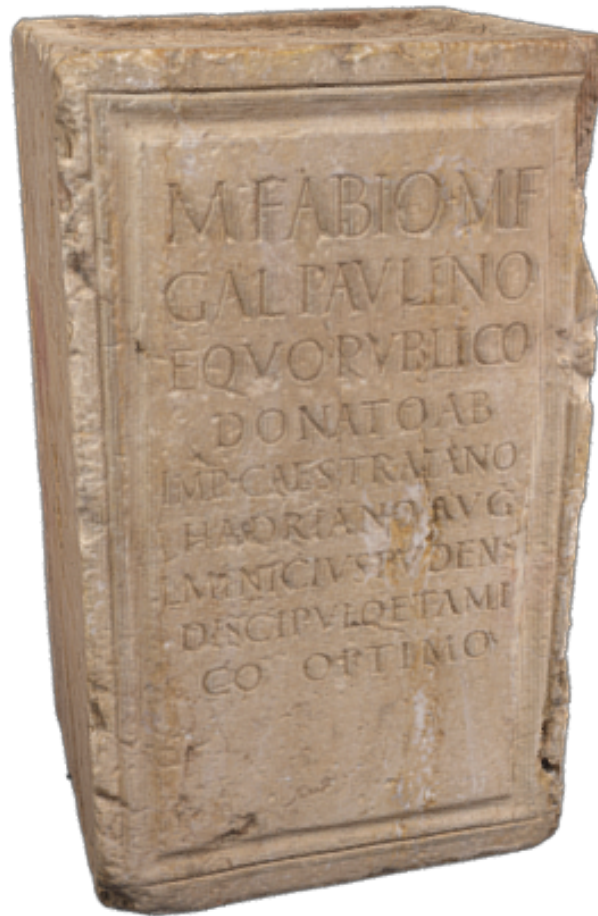 M·FABIO·M·F
GAL PAVLINO
EQVO·PVBLICO
DONATO AB
IMP·CAES TRAIANO
HADRIANO AVG
L MINICIVS PVDENS
DISCIPVLO ET AMI
CO OPTIMO